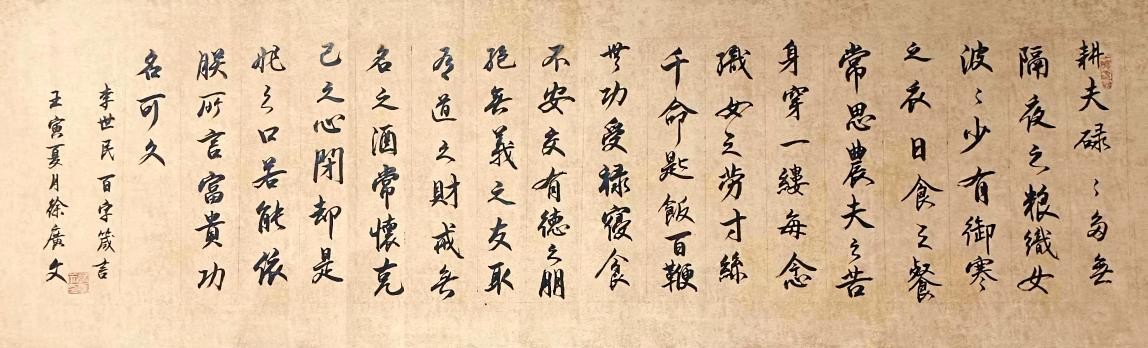 耕夫碌〻多無
隔夜之粮織女
波〻少有御寒
之衣日食三餐
常思農夫之苦
身穿一縷每念
織女之勞寸絲
千命匙飯百鞭
無功受祿寢食
不安交有德之朋
絕無義之友取
有道之財戒無
名之酒常懷克
己之心閉却是
非之口若能依
朕所言富貴功
名可久
李世民百字箴言
壬寅夏月徐廣文